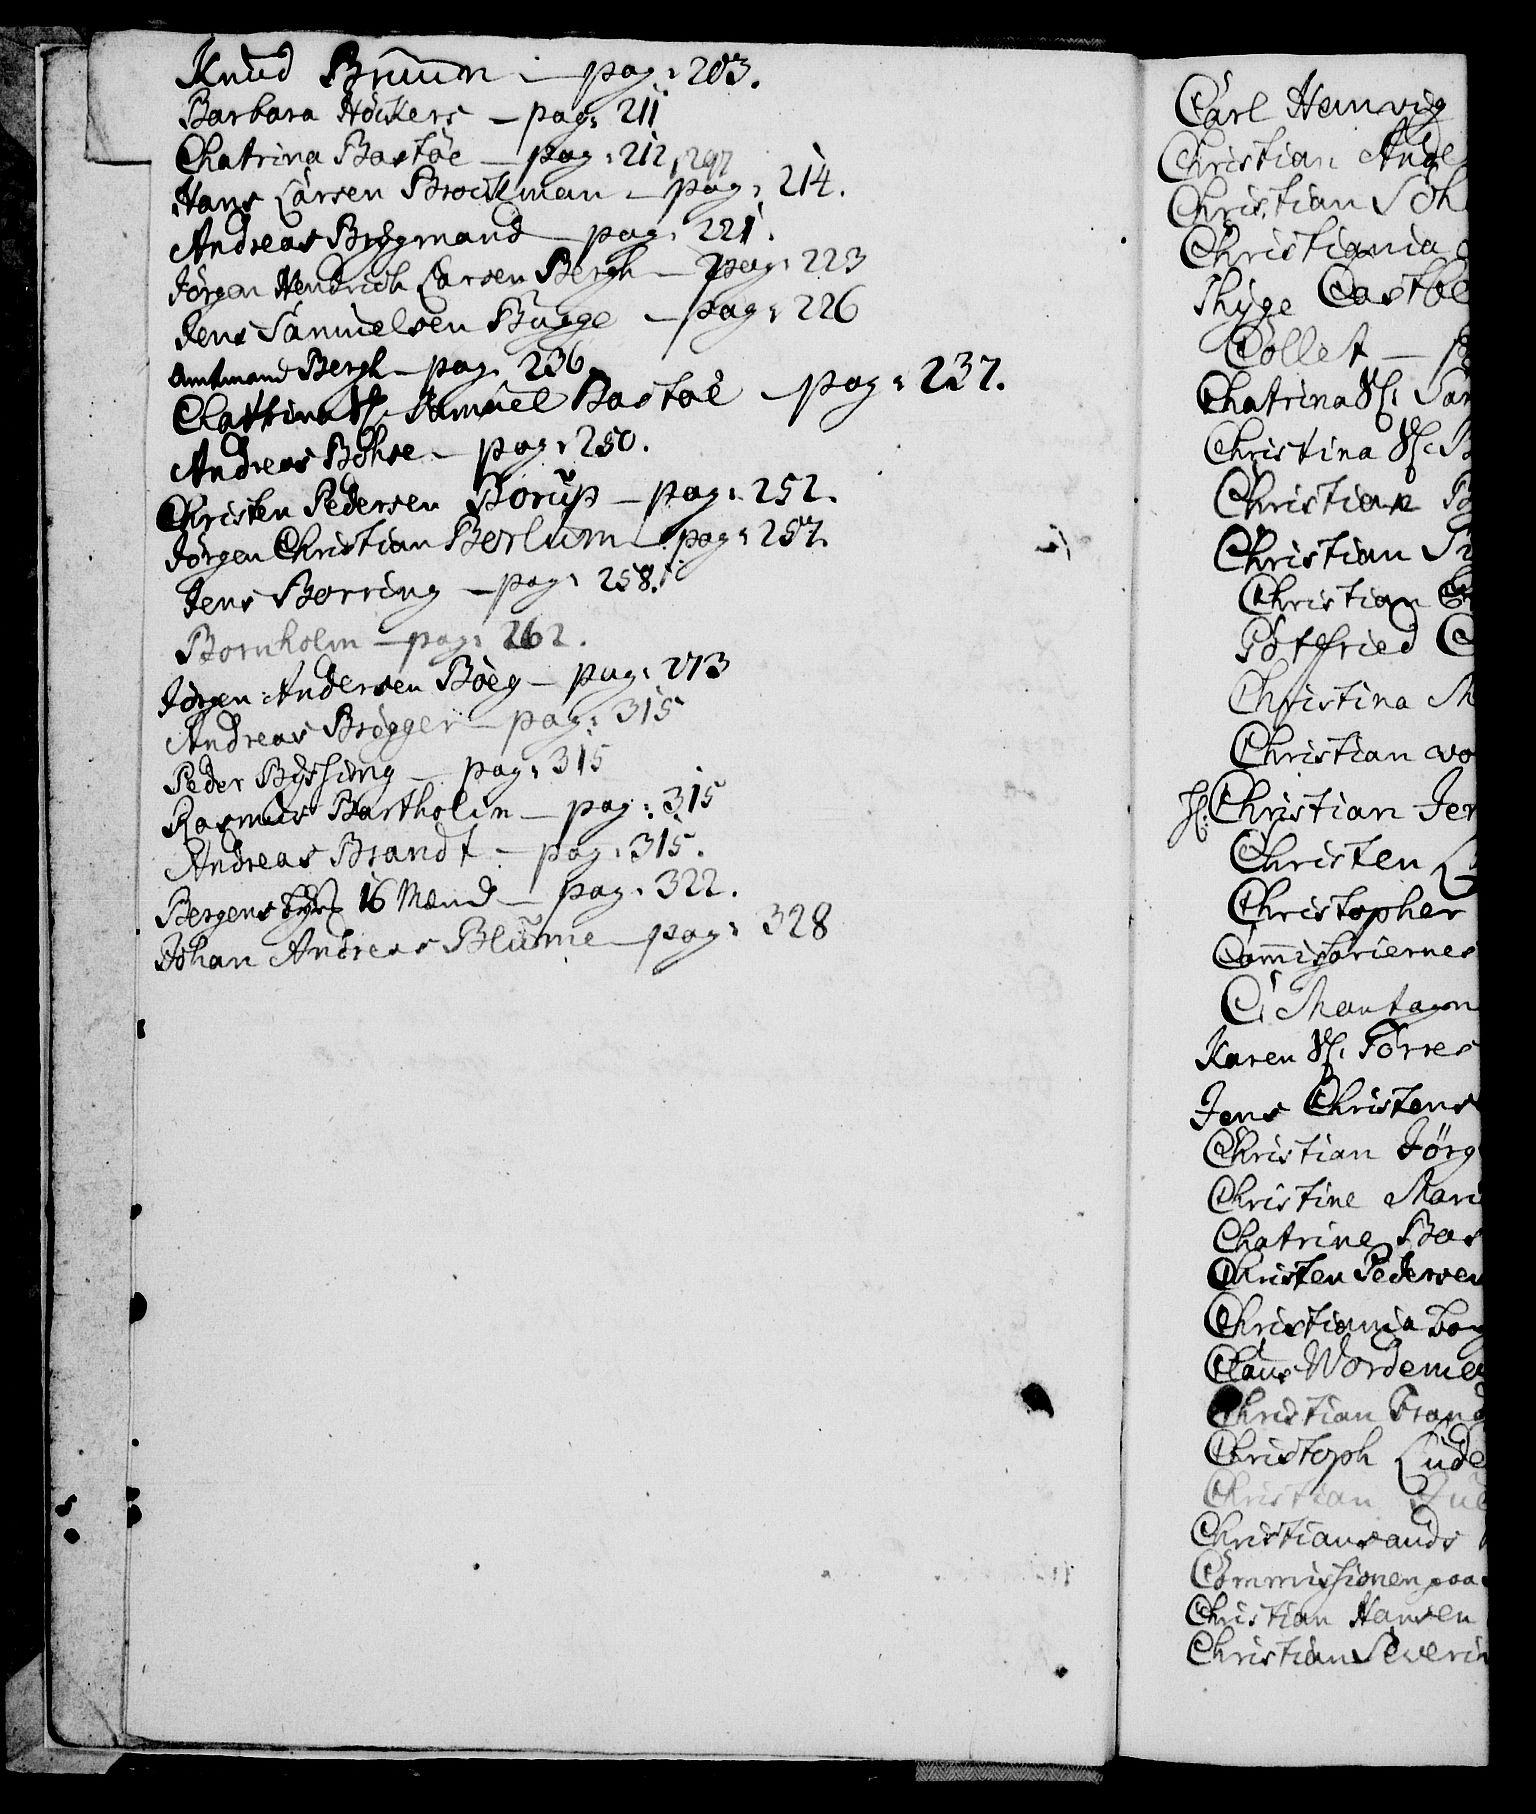 Knud Bruun - pag: 203.
Barbara Höckers - pag: 211
Chatrina Bastöe - pag: 212, 297
Hans Larsen Brockman - pag: 214.
Andreas Brygmand - pag: 221.
Jörgen Hendrich Larsen Bergh - pag: 223
Jens Samuelsen Bugge - pag: 226
Amtmand Bergh - pag: 236.
Chatrina Sl. Samuel Bastöe - pag: 237.
Andreas Böhse - pag: 250.
Christen Pedersen Borup - pag: 252.
Jörgen Christian Berlum - pag: 257.
Jens Borring - pag: 258.
Bornholm - pag: 262.
Jörgen Andersen Böeg - pag: 273
Andreas Brögger - pag: 315
Peder Byssing - pag: 315
Rasmus Bartholin - pag: 315
Andreas Brandt - pag: 315.
Bergens 16 Mænd - pag: 322.
Johan Andreas Blume - pag: 328
Carl Hemvig
Christian Ande
Christian Sch
Christiania
Thyge Castbe
Collet - p
Chatrina Sl. Sam
Christina Sl. B
Christian B
Christian
Christian
Gotfried C
Christina M
Christian wo
Sl. Christian Jen
Christen L
Christopher
Commissariernes
C: Mantagn
Karen Sl. Törres
Jens Christens
Christian Jörg
Christine Mari
Chatrine Bas
Christen Pedersen
Christiania Bor
Claus Wordeme
Christian Frand
Christoph Lude
Christian Jul
Christiansands
Commissionen paa
Christian Hansen
Christian Severin